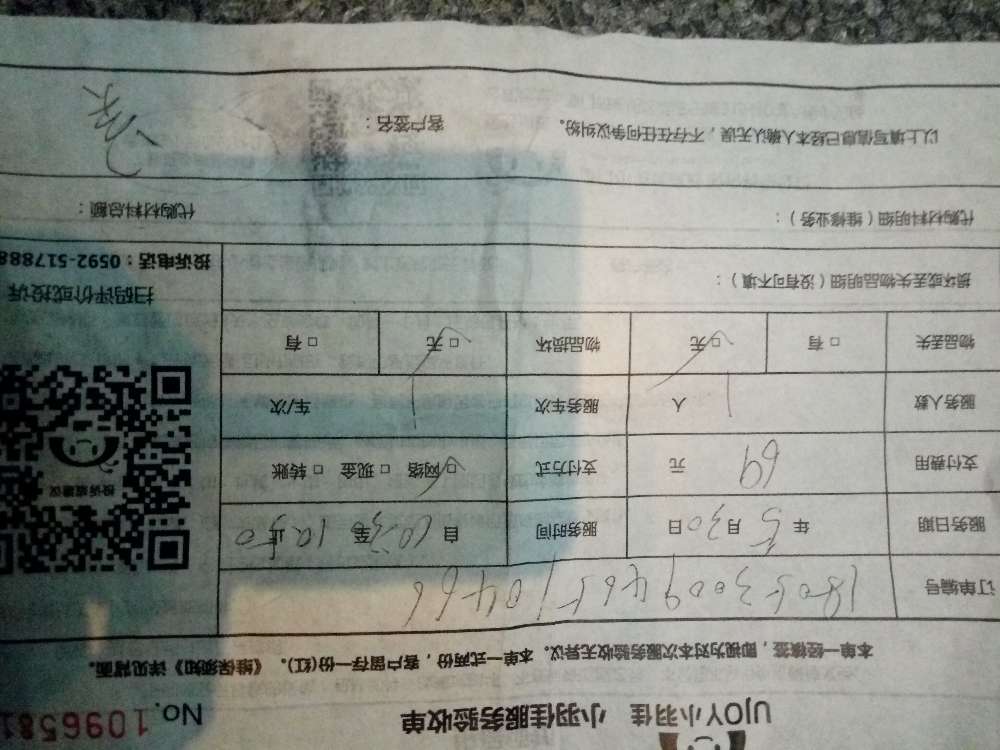 UJOY小羽佳 小羽佳服务验收单 No.
本单一经核签，即视为对本次服务验收无异议。本单一式两份，客户留存一份(红)。《维保须知》详见背面。
订单编号
服务日期 年 5月30日 服务时间 自10:30至10:50止
支付费用 69 元 支付方式 □网络 □现金 □转账
服务人数 1 人 服务车次 1 车/次
物品丢失 □有 □无 物品损坏 □无 □有
投诉或建议
扫码评价或投诉
损坏或丢失物品明细（没有可不填）：
投诉电话：0592-517888
代购材料明细（维修业务）： 代购材料总额：
以上填写信息已经本人确认无误，不存在任何争议纠纷。 客户签名：